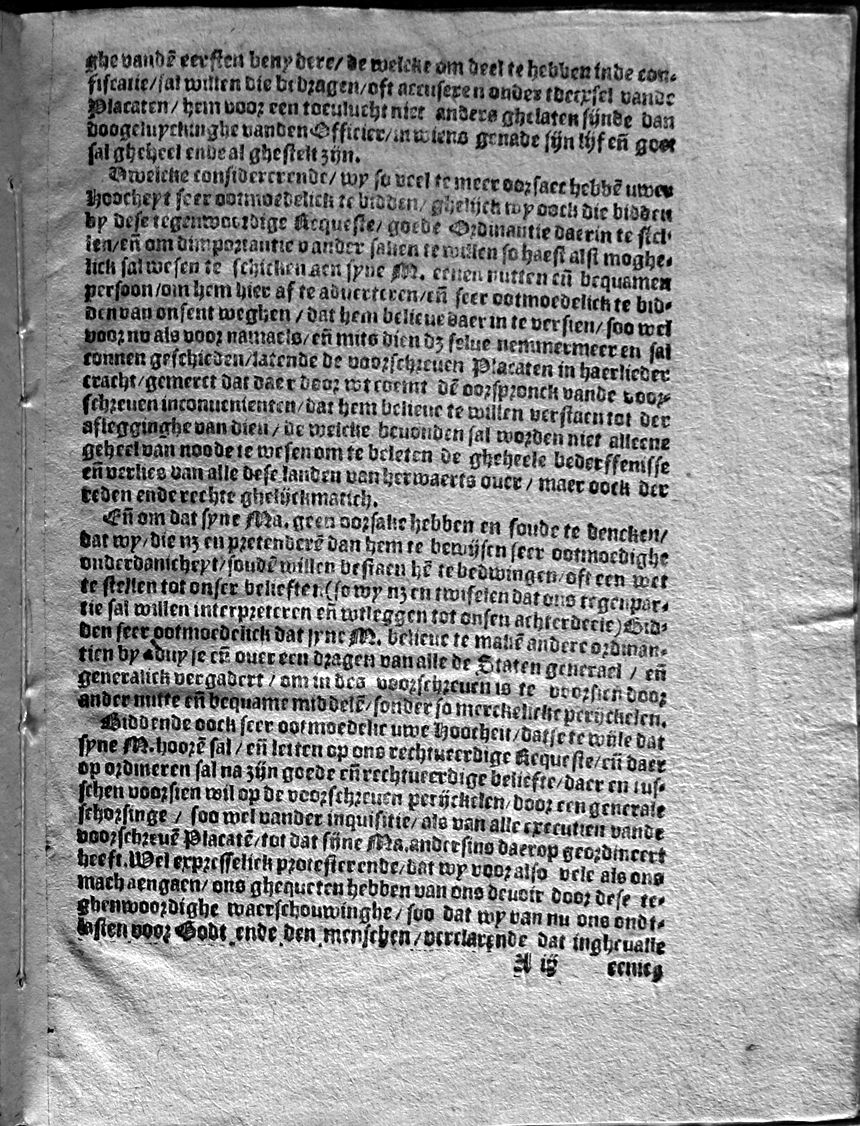 ghe vandē eersten benydere/ de welcke om deel te hebben inde con-
fiscatie/ sal willen die bedragen/ oft accuseren onder tdecxsel vande
Placaten/ hem voor een toeulucht niet anders ghelaten sijnde dan
doogeluyckinghe vanden Officier/ in wiens genade sijn lijf eñ goet
sal gheheel ende al ghestelt zijn.
Twelcke considererende/ wy so veel te meer oorsaec hebbē uwer
Hoocheyt seer ootmoedelick te bidden/ ghelijck wy oock die bidden
by dese tegenwoordige Requeste/ goede Ordinantie daerin te stel-
len/ eñ om dimportantie vander saken te willen so haest alst moghe-
lick sal wesen te schicken aen syne M. eenen nutten eñ bequamen
persoon/ om hem hier af te aduerteren/ eñ seer ootmoedelick te bid-
den van onsent weghen / dat hem belieue daer in te versien/ soo wel
voor nu als voor namaels/ eñ mits dien dz selue nemmermeer en sal
connen geschieden/ latende de voorschreuen Placaten in haerlieder
cracht/ gemerct dat daer door wt coemt dē oorspronck vande voor-
schreuen inconuenienten/ dat hem belieue te willen verstaen tot der
aflegginghe van dien/ de welcke beuonden sal worden niet alleene
geheel van noode te wesen om te beleten de gheheele bederffenisse
eñ verlies van alle dese landen van herwaerts ouer / maer oock der
reden ende rechte ghelijckmatich.
Eñ om dat syne Ma. geen oorsake hebben en soude te dencken/
dat wy/ die nz en pretenderē dan hem te bewijsen seer ootmoedighe
onderdanicheyt/ soudē willen bestaen hē te bedwingen/ oft een wet
te stellen tot onser beliefte: (so wy nz en twifelen dat ons tegenpar-
tie sal willen interpreteren eñ wtleggen tot onsen achterdeele) Bid-
den seer ootmoedelick dat syne M. belieue te makē andere ordinan-
tien by aduyse eñ ouer een dragen van alle de Staten generael / eñ
generalick vergadert / om in des voorschreuen is te voorsien door
ander nutte eñ bequame middelē/ sonder so merckelicke perijckelen.
Biddende oock seer ootmoedelic uwe Hoocheit/ datse te wijle dat
syne M. hoorē sal / eñ letten op ons rechtueerdige Requeste/ eñ daer
op ordineren sal na zijn goede eñ rechtueerdige beliefte/ daer en tus-
schen voorsien wil op de voorschreuen perijckelen/ door een generale
schorsinge / soo wel vander inquisitie/ als van alle executien vande
voorschreuē Placatē/ tot dat sijne Ma. andersins daerop geordineert
heeft. Wel expresselick protesterende/ dat wy voor also vele als ons
mach aengaen/ ons ghequeten hebben van ons deuoir door dese te-
ghenwoordighe waerschouwinghe/ soo dat wy van nu ons ondt-
lasten voor Godt ende den menschen/ verclarende dat inghevalle
A iij eenich